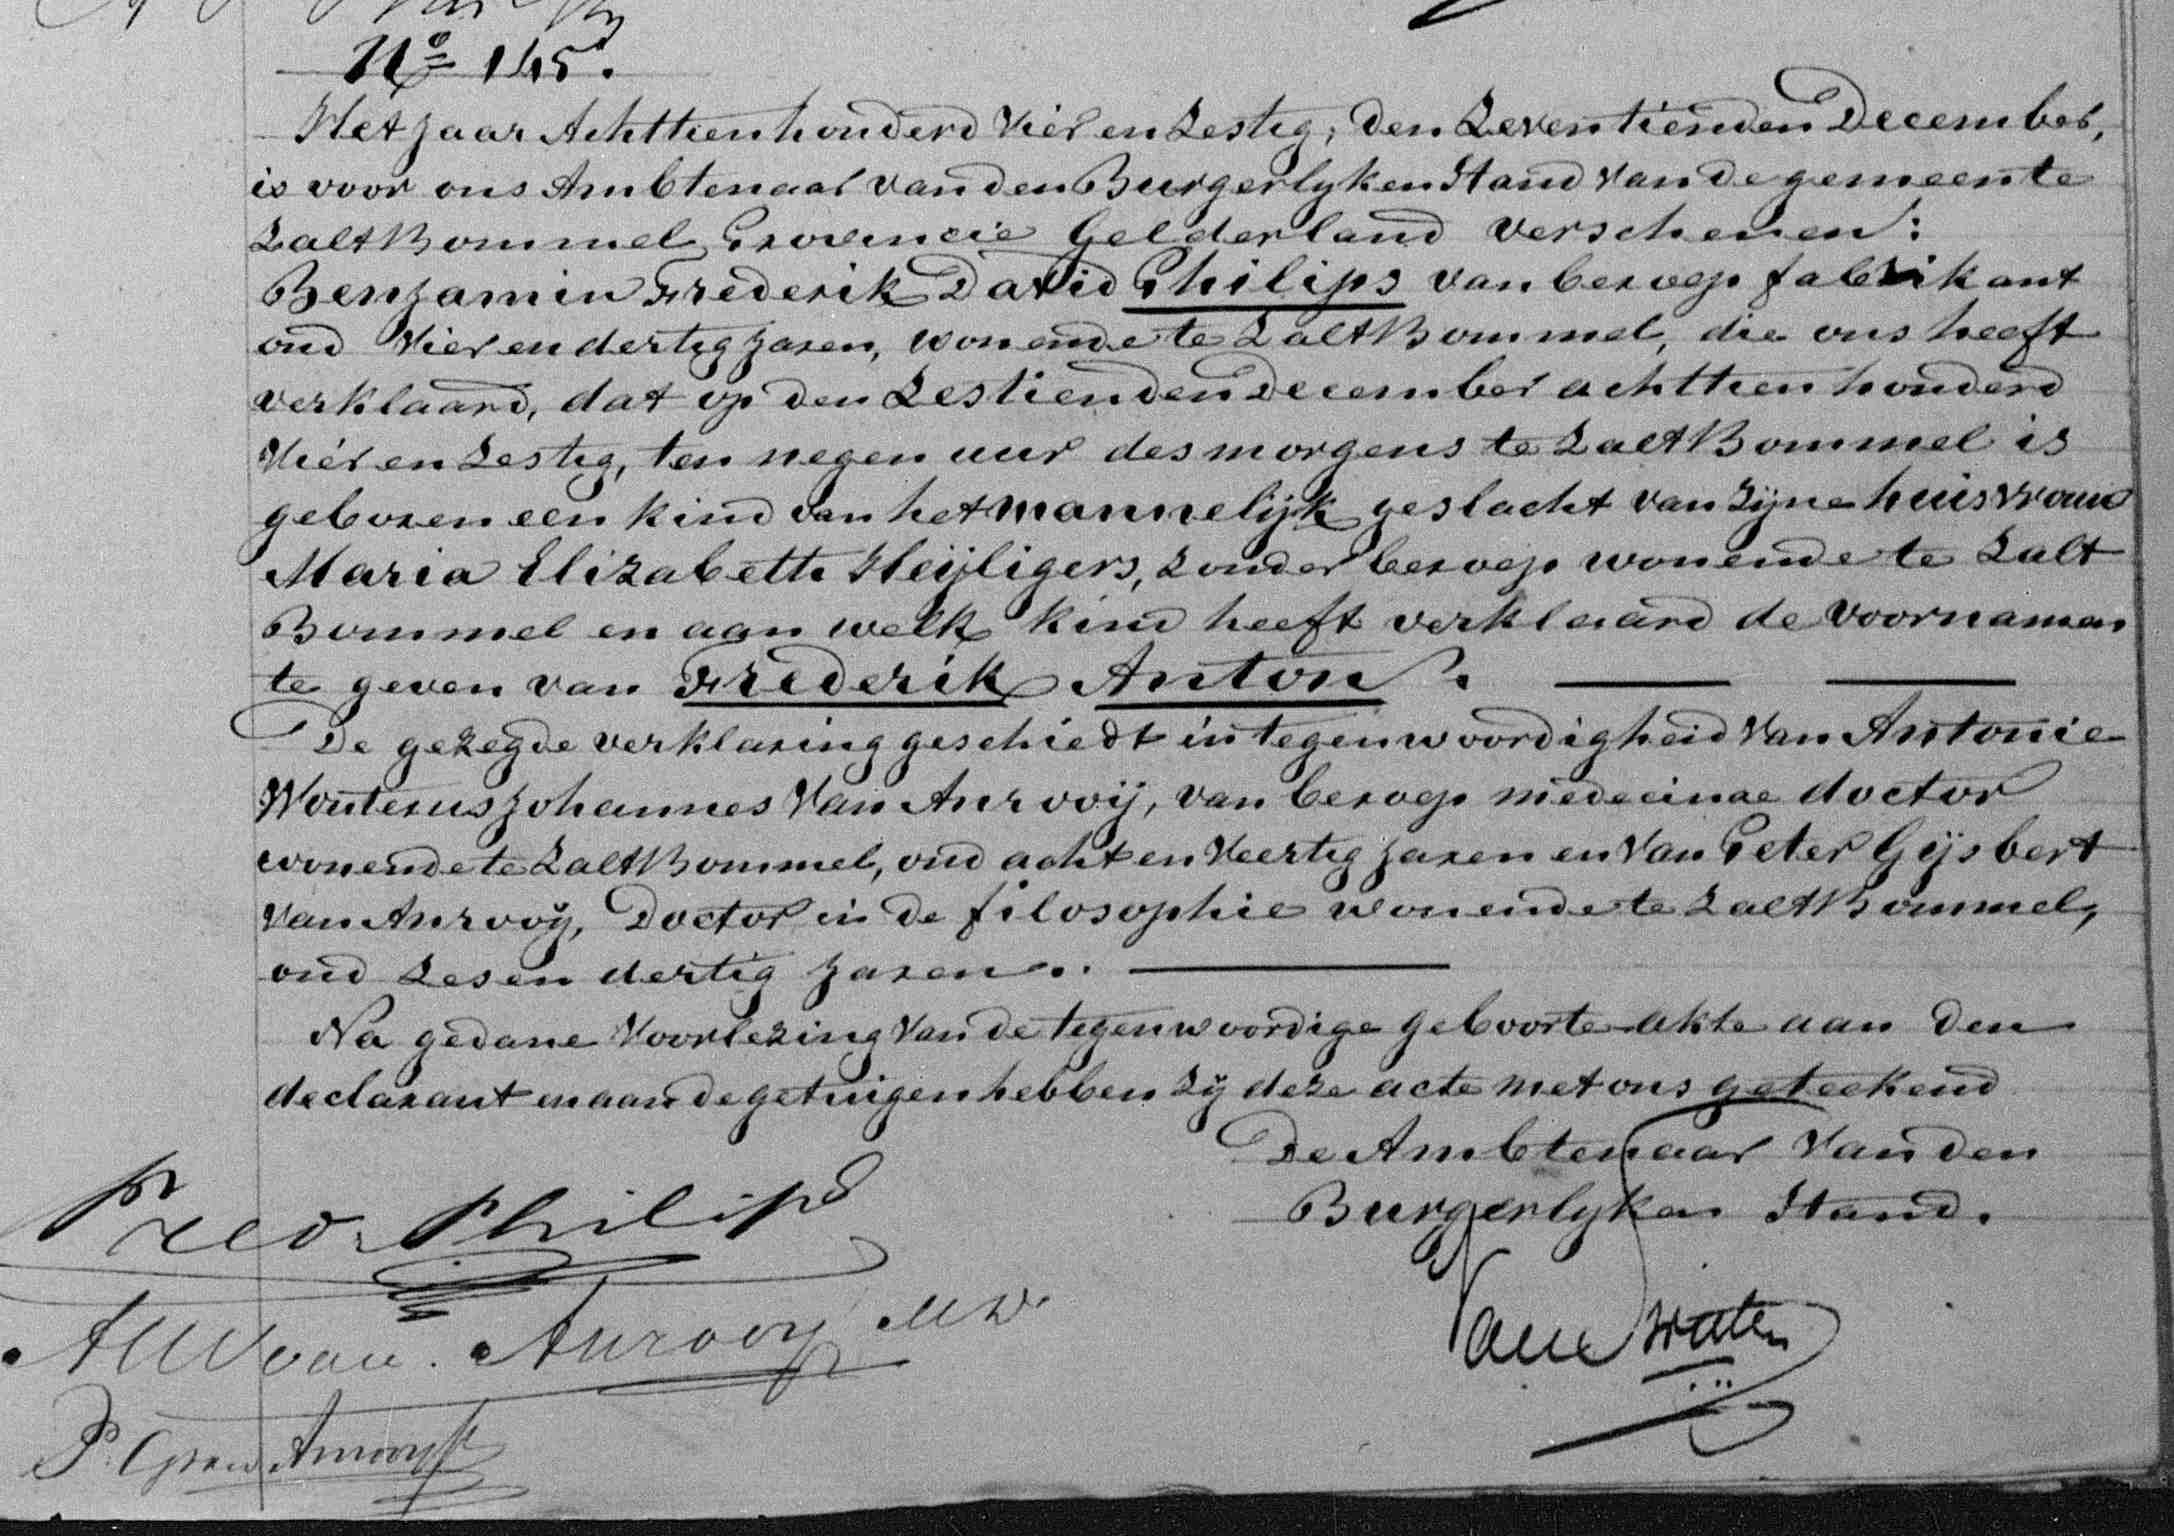 No 145.
Het jaar Achttienhonderd Vier en Zestig, den Zeventienden December,
is voor ons Ambtenaar van den Burgerlyken Stand van de gemeente
ZaltBommel, Provincie Gelderland verschenen:
Benjamin Frederik David Philips van beroep fabrikant
oud Vier en dertig jaren, wonende te ZaltBommel, die ons heeft
verklaard, dat op den Zestienden December achttien honderd
Vier en Zestig, ten negen uur des morgens te ZaltBommel is
geboren een kind van het mannelijk geslacht van zijne huisvrouw
Maria Elizabeth Heijligers, zonder beroep wonende te Zalt
Bommel en aan welk kind heeft verklaard de voornamen
te geven van Frederik Anton.
De gezegde verklaring geschiedt in tegenwoordigheid van Antonie
Wouterus Johannes Van Anrooij, van beroep medecinae doctor
wonende te ZaltBommel, oud acht en Veertig jaren en Van Peter Gijsbert
van Anrooij, Doctor in de filosophie wonende te ZaltBommel,
oud Zes en dertig jaren.
Na gedane Voorlezing Van de tegenwoordige geboorte akte aan den
declarant en aan de getuigen hebben zij deze acte met ons geteekend
De Ambtenaar Van den
Burgerlyken Stand.
Fred. Philips
van Anrooy MD
P. G. van Anrooy